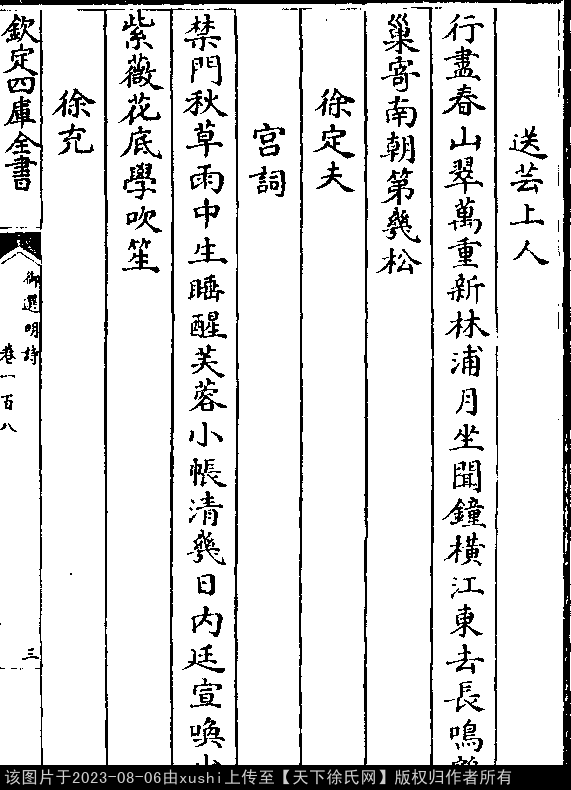 送芸上人
行盡春山翠萬重新林浦月坐聞鐘橫江東去長鳴
巢寄南朝第幾松
徐定夫
宮詞
禁門秋草雨中生睡醒芙蓉小帳清幾日内廷宣喚
紫薇花底學吹笙
徐充
欽定四庫全書
御選明詩
卷一百八
三
该图片于2023-08-06由xushi上传至【天下徐氏网】版权归作者所有